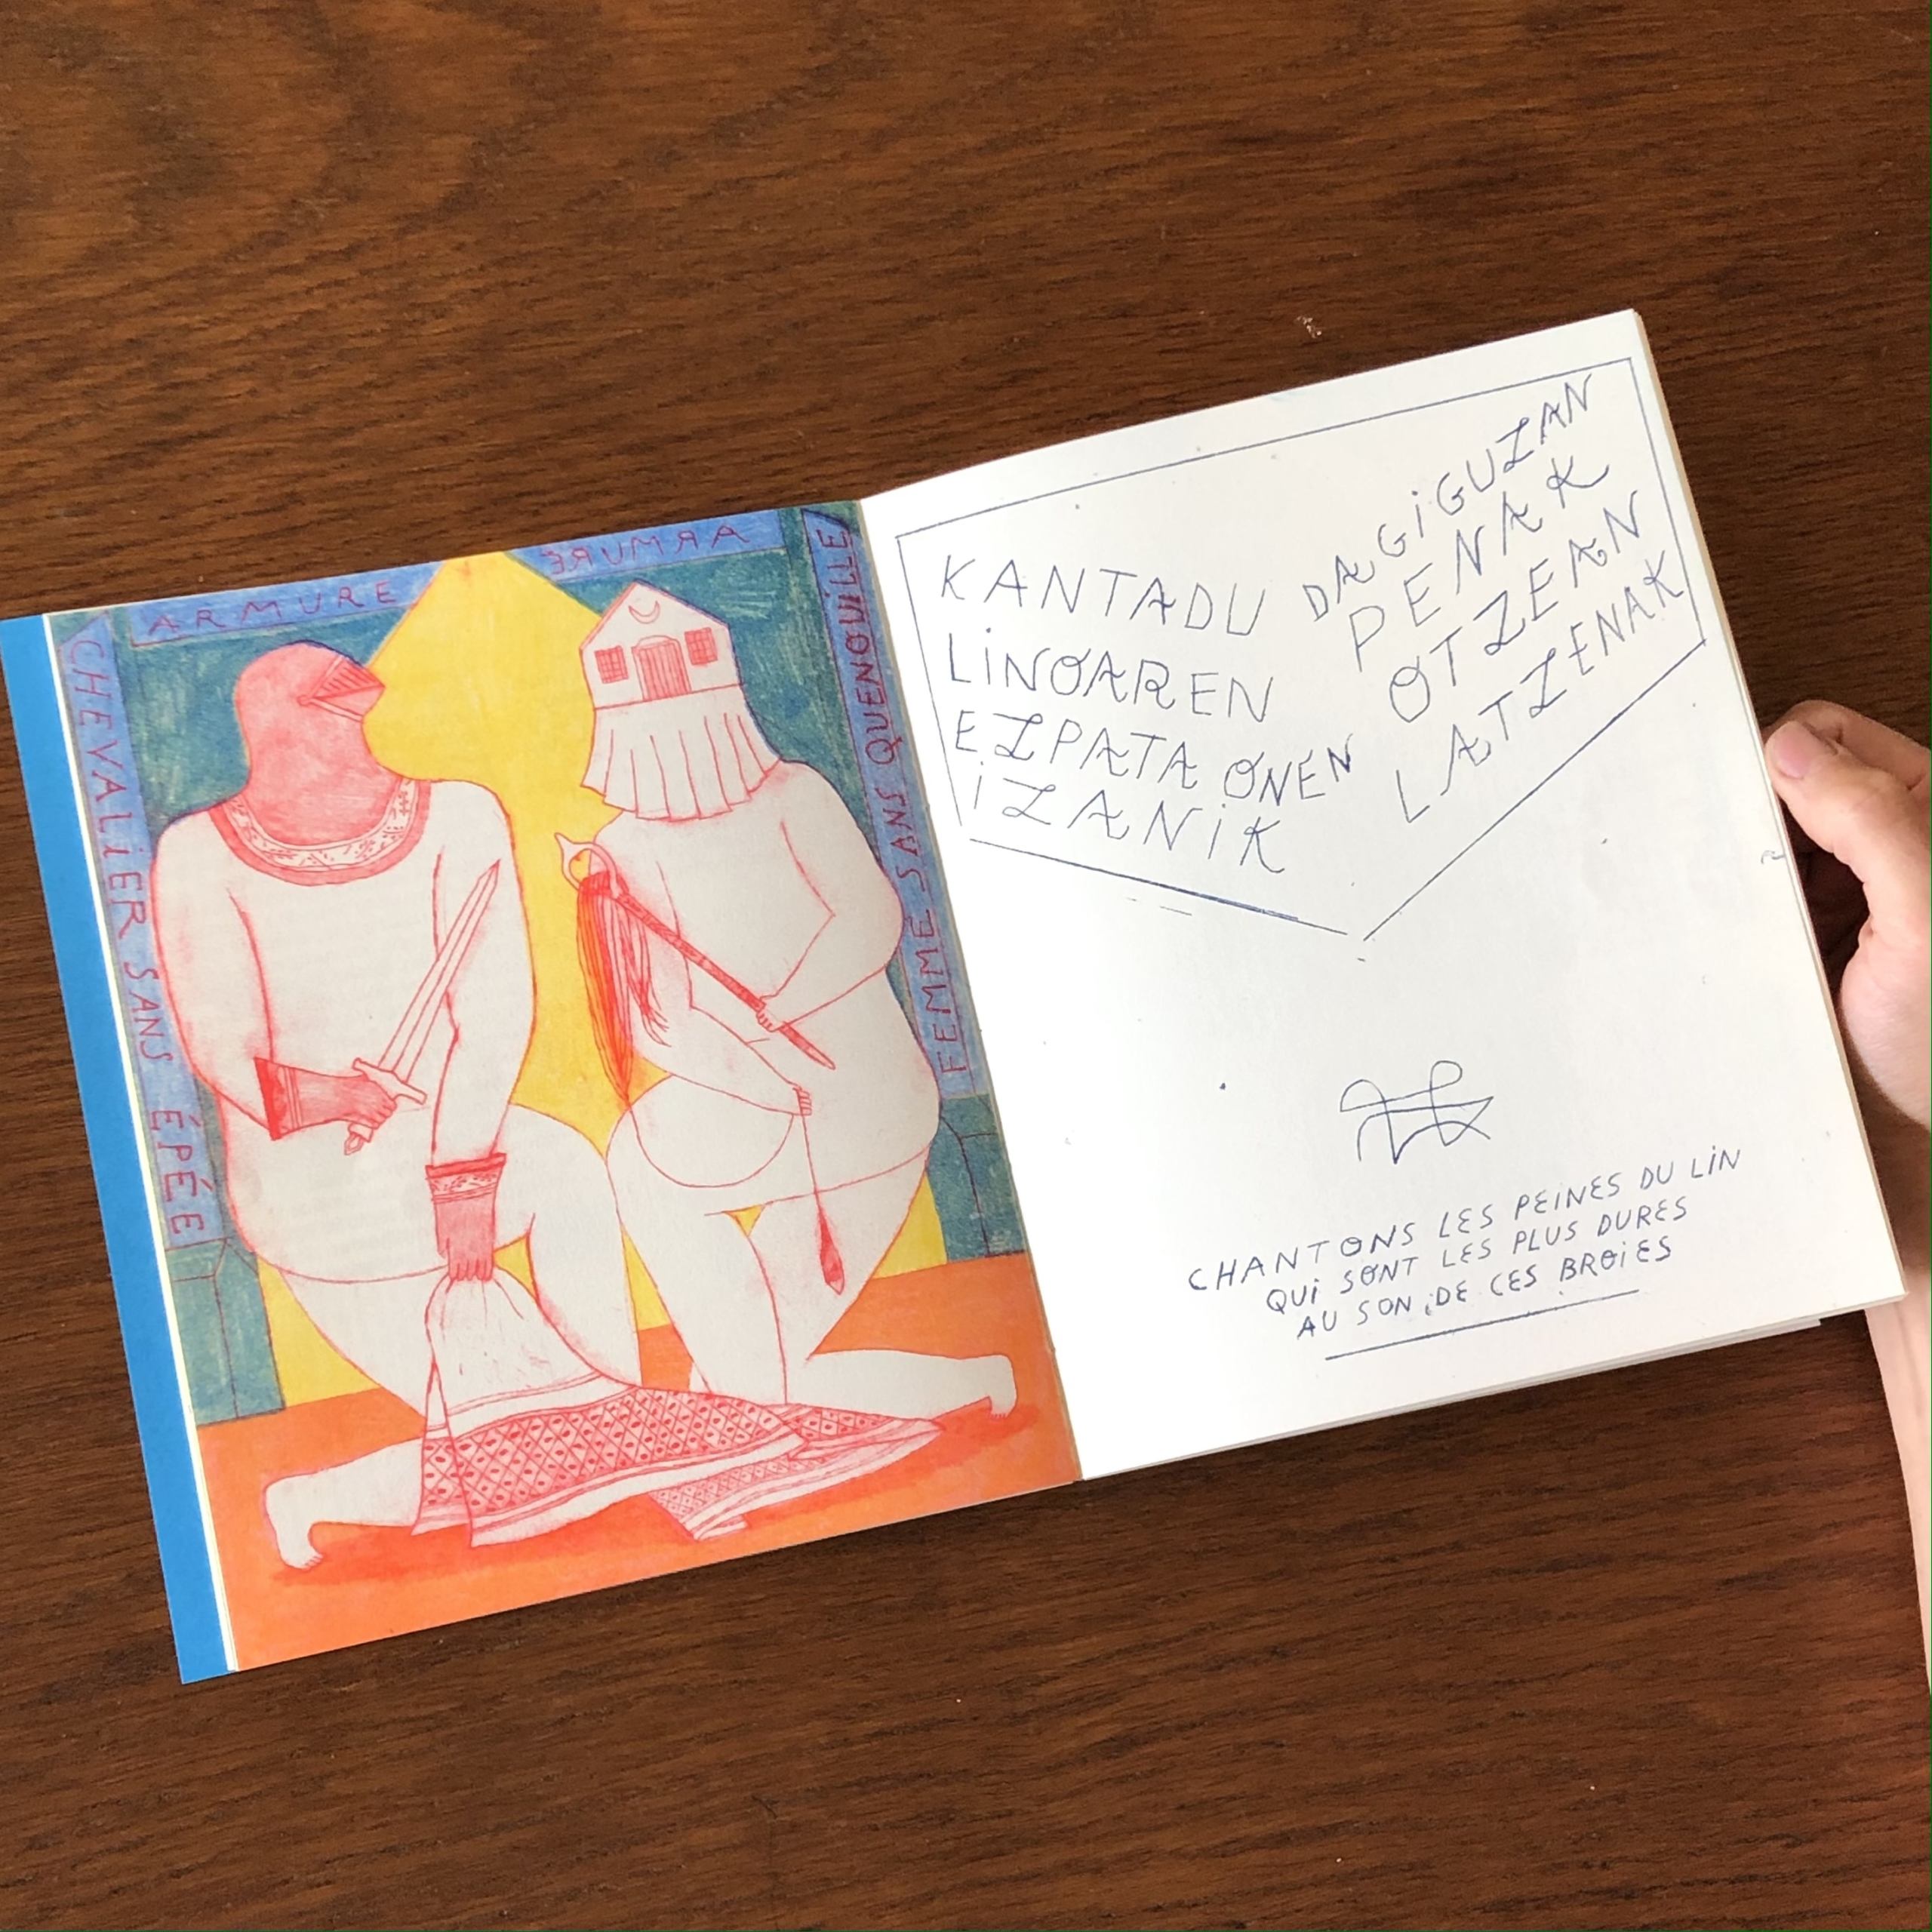 CHEVALIER SANS ÉPÉE
ARMURE
ARMURE
FEMME SANS QUENOUILLE
KANTADU DAGIGUZAN
LINOAREN PENAK
EZPATA ONEN OTZEAN
IZANIK LATZENAK
CHANTONS LES PEINES DU LIN
QUI SONT LES PLUS DURES
AU SON DE CES BROIES